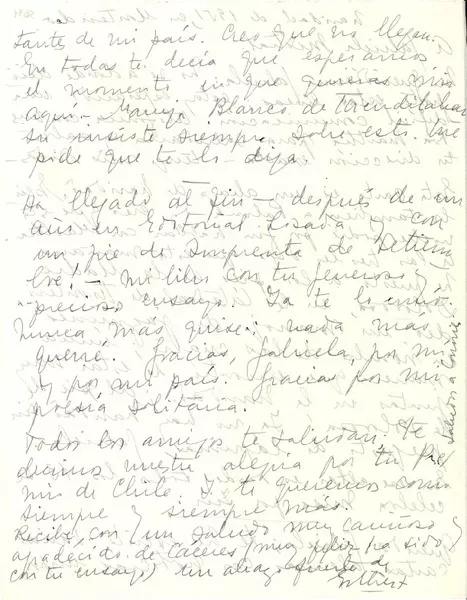 tante de mi país. Creo que no llegan.
En todas te decía que esperamos
el momento en que quieras venir
aquí.
Blanco de
su insiste siempre sobre esto. Me
pide que te lo diga.
Ha llegado al fin — después de un
año en Editorial Losada y con
un pie de Imprenta de Setiem
bre! — mi libro con tu generoso y
precioso ensayo. Ya te lo envié.
Nunca más quise; nada más
querré. Gracias, Gabriela, por mí
y por mi país. Gracias por mi
poesía solitaria.
Todos los amigos te saludan, te
decimos nuestra alegría por tu Pre
mio de Chile. Y te queremos como
siempre y siempre más.
Recibe, con un saludo muy cariñoso y
agradecido de Cáceres (muy feliz ha sido
con tu ensayo) un abrazo fuerte de
Esther
Saludos a